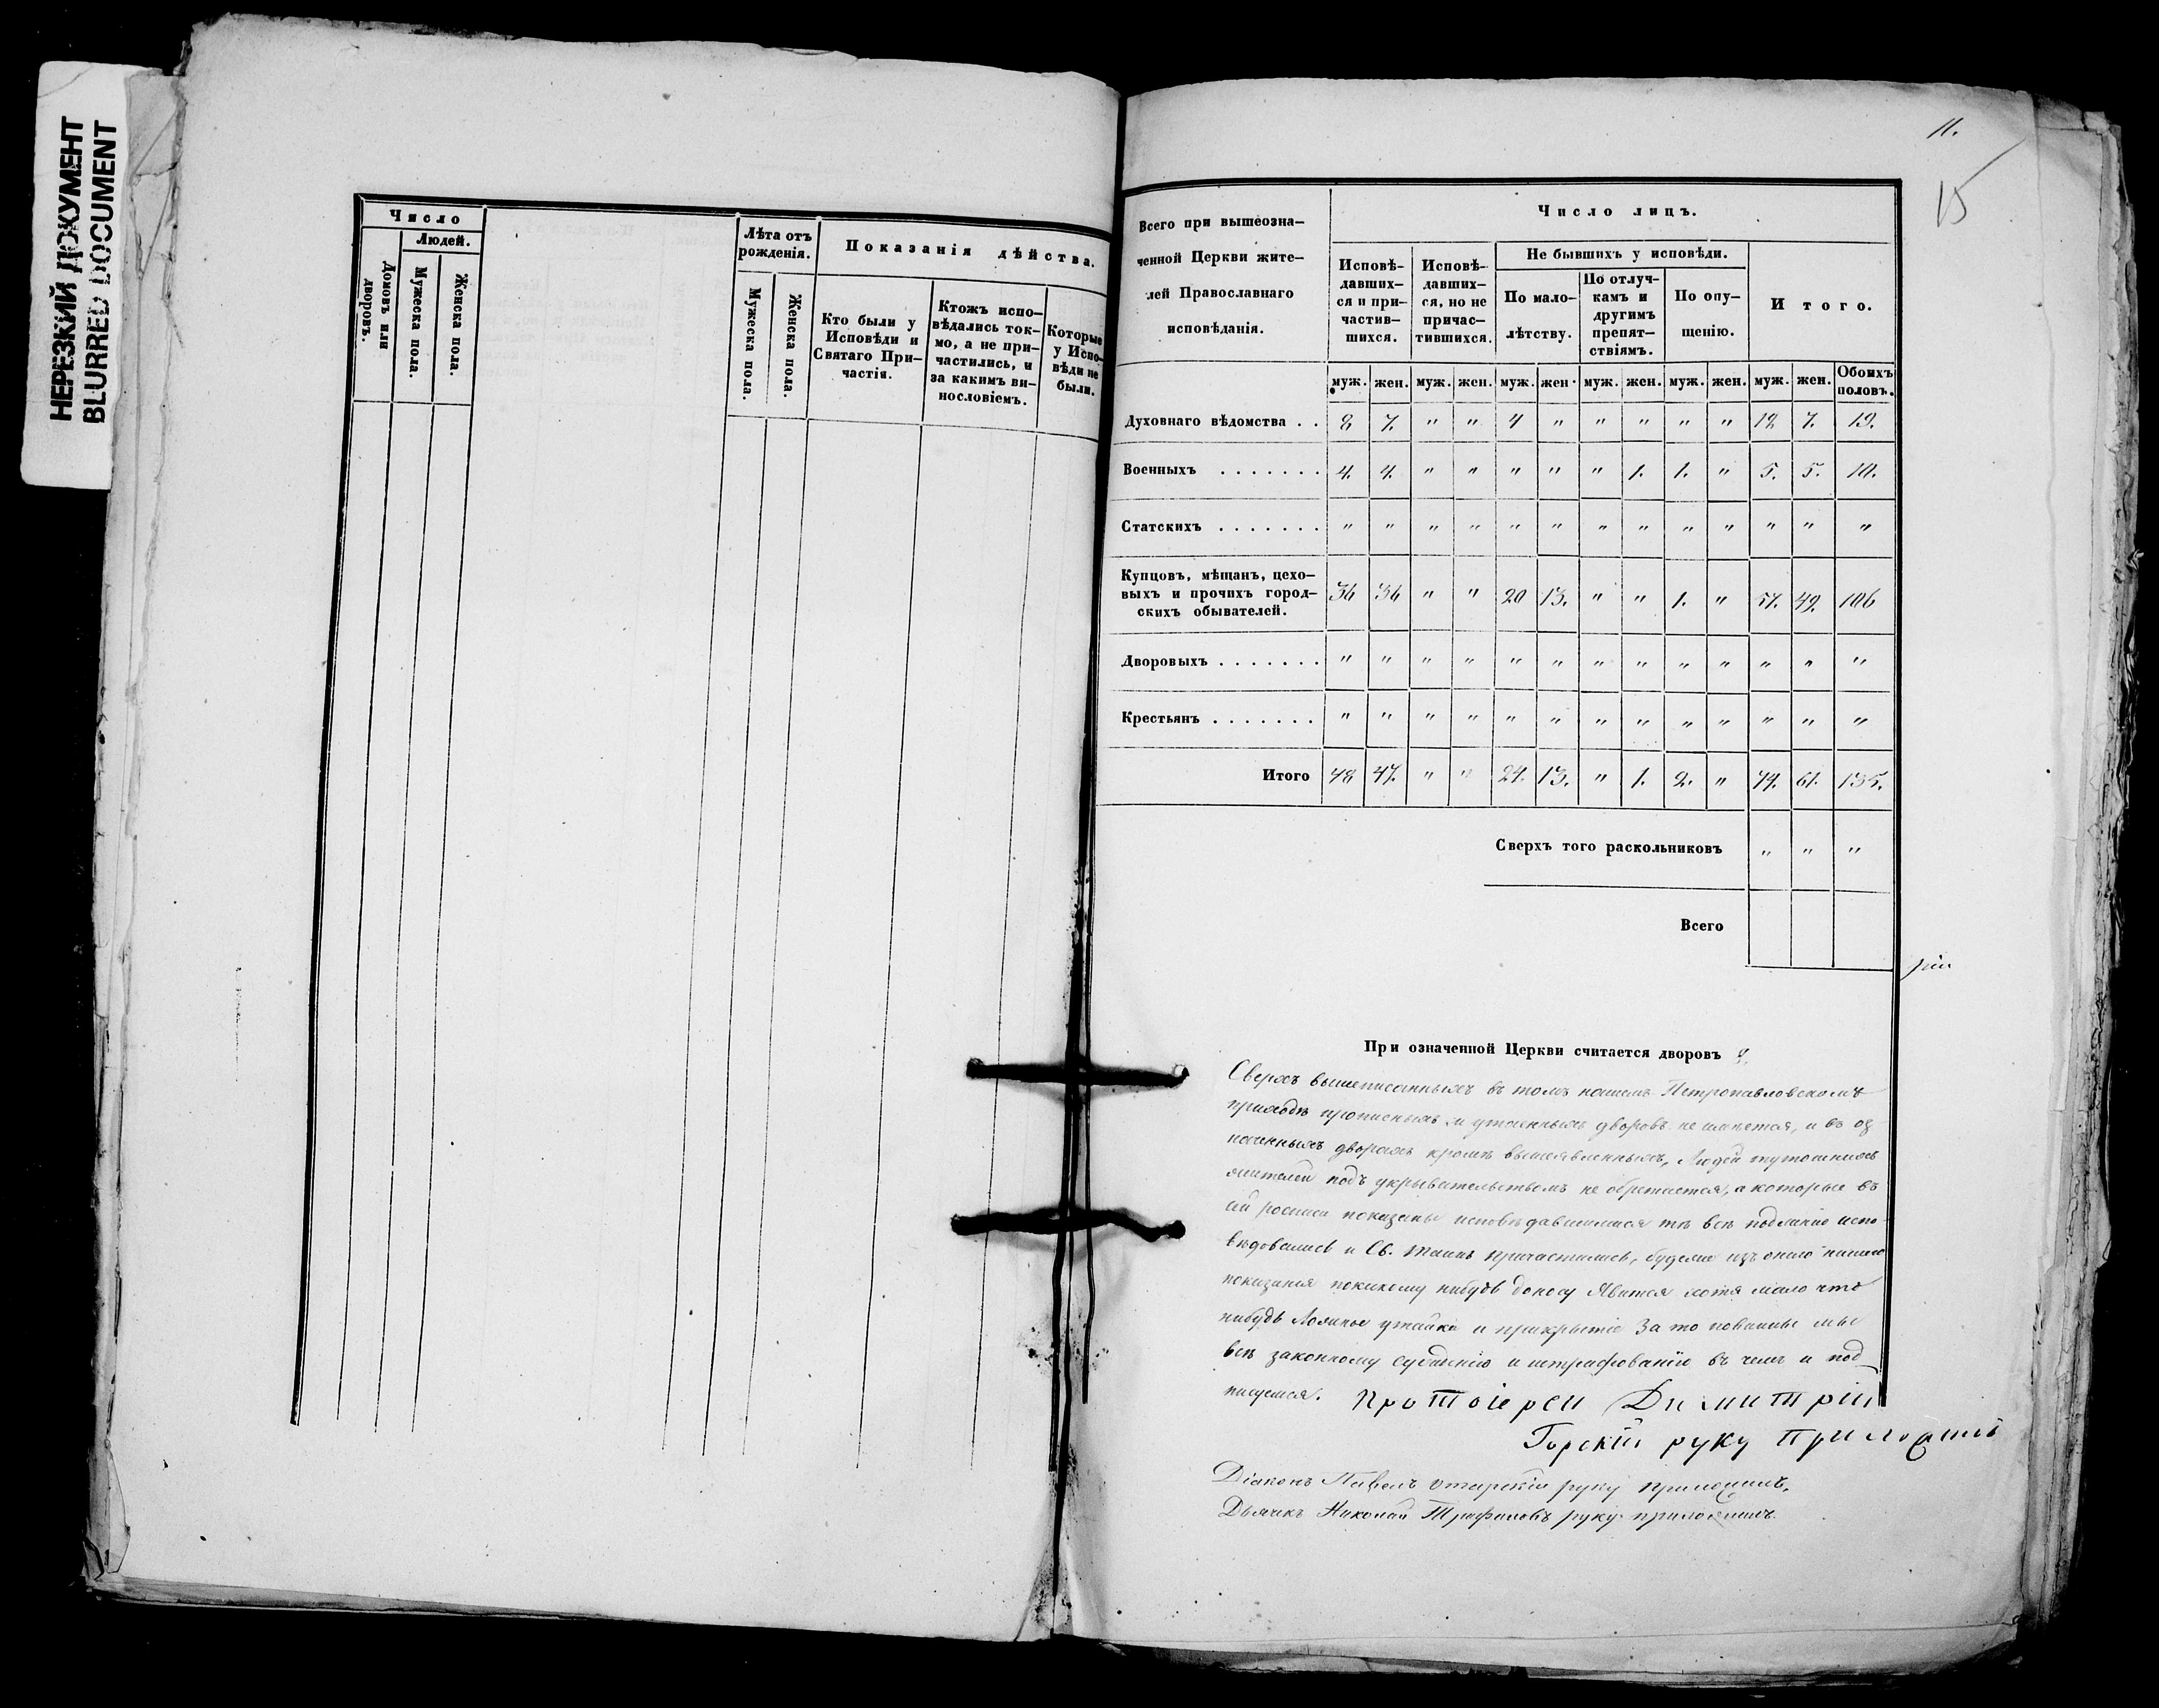 НЕРЕЗКИЙ ДОКУМЕНТ
BLURRED DOCUMENT
Число
Людей.
Домовъ или дворовъ.
Мужеска пола.
Женска пола.
Лѣта отъ рожденія.
Мужеска пола.
Женска пола.
Показанія дѣйства.
Кто были у Исповѣди и Святаго Причастія.
Ктожъ исповѣдались токмо, а не причастились, и за какимъ винословіемъ.
Которые у Исповѣди не были.
11.
15
Всего при вышеозна-
ченной Церкви жите-
лей Православнаго
исповѣданія.
Число лицъ.
Исповѣ-давших-ся и при-частив-шихся.
Исповѣ-давших-ся, но не причас-тившихся.
Не бывшихъ у исповѣди.
По мало-лѣтству.
По отлуч-камъ и другимъ препят-ствіямъ.
По опу-щенію.
Итого.
муж. жен. муж. жен. муж. жен. муж. жен. муж. жен. муж. жен. Обоихъ половъ.
Духовнаго вѣдомства . . 8 7. " " 4 " " " " " 12 7. 19.
Военныхъ . . . . . . . 4. 4. " " " " " 1. 1. " 5. 5. 10.
Статскихъ . . . . . . . " " " " " " " " " " " " "
Купцовъ, мѣщанъ, цехо-
выхъ и прочихъ город-
скихъ обывателей. 36 36 " " 20 13. " " 1. " 57. 49. 106
Дворовыхъ . . . . . . . " " " " " " " " " " " " "
Крестьянъ . . . . . . . " " " " " " " " " " " " "
Итого 48 47. " " 24. 13. " 1. 2. " 74. 61. 135.
Сверхъ того раскольниковъ " " "
Всего
При означенной Церкви считается дворовъ
Сверхъ вышеписанныхъ въ томъ нашемъ Петропавловскомъ
приходѣ прописныхъ и утаенныхъ дворовъ не имѣется, и въ оз
наченныхъ дворахъ кромѣ вышеявленныхъ, людей тутошнихъ
жителей подъ укрывательствомъ не обретается, а которые въ
сей росписи показаны исповѣдавшимися тѣ всѣ подлинно испо-
вѣдовались и Св. Таинъ причастились, будеже изъ онаго нашего
показанія покакому нибудь доносу явится хотя мало что
нибудь ложное утайка и прикрытіе за то повинны мы
всѣ законному сужденію и штрафованію въ чемъ и под
писуемся. Протоіерей Димитрій
Горскій руку приложилъ
Діаконъ Павелъ руку приложилъ.
Дьячекъ Николай Трофимовъ руку приложилъ.